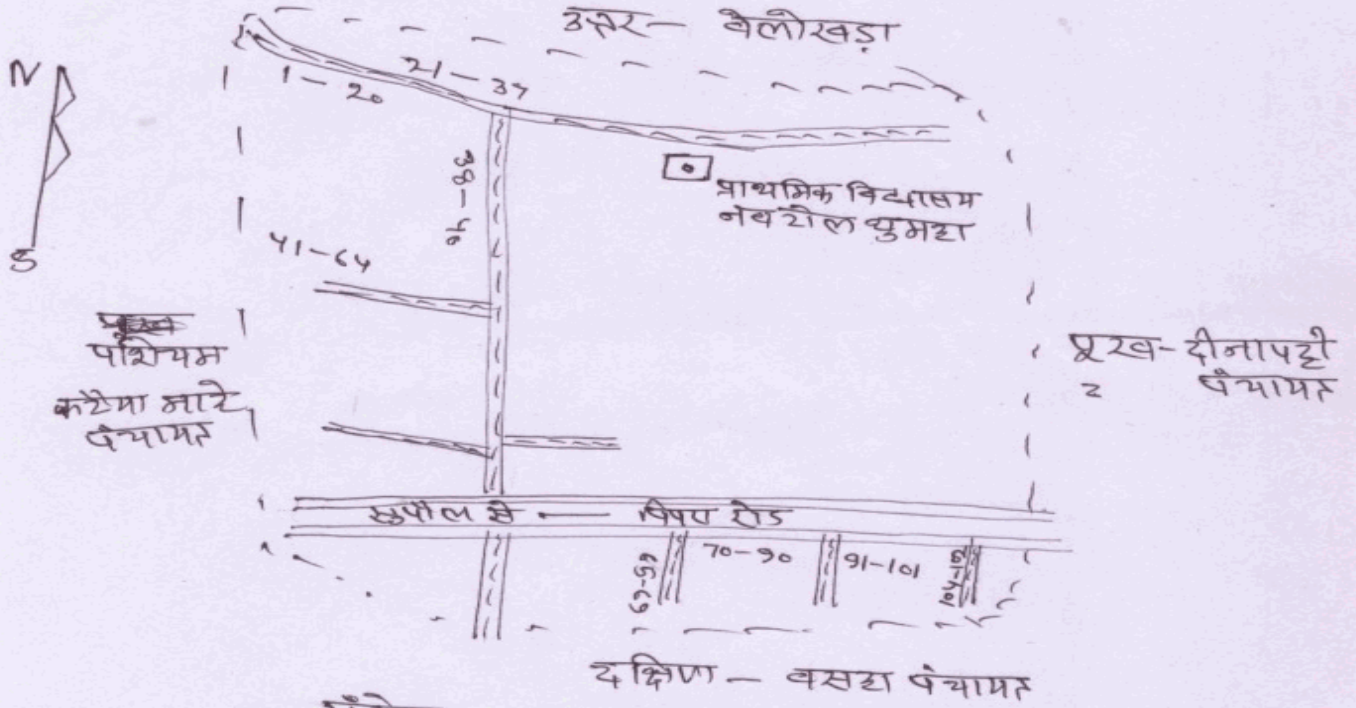 उत्तर - बेलोखड़ा
N
S
1 - 20
21 - 37
38 - 40
प्राथमिक विद्यालय
41 - 64
पश्चिम
पंचायत
पूरब - दीनापट्टी
पंचायत
सुपौल से — रोड
65-69
70-90
91-101
दक्षिण - बसहा पंचायत